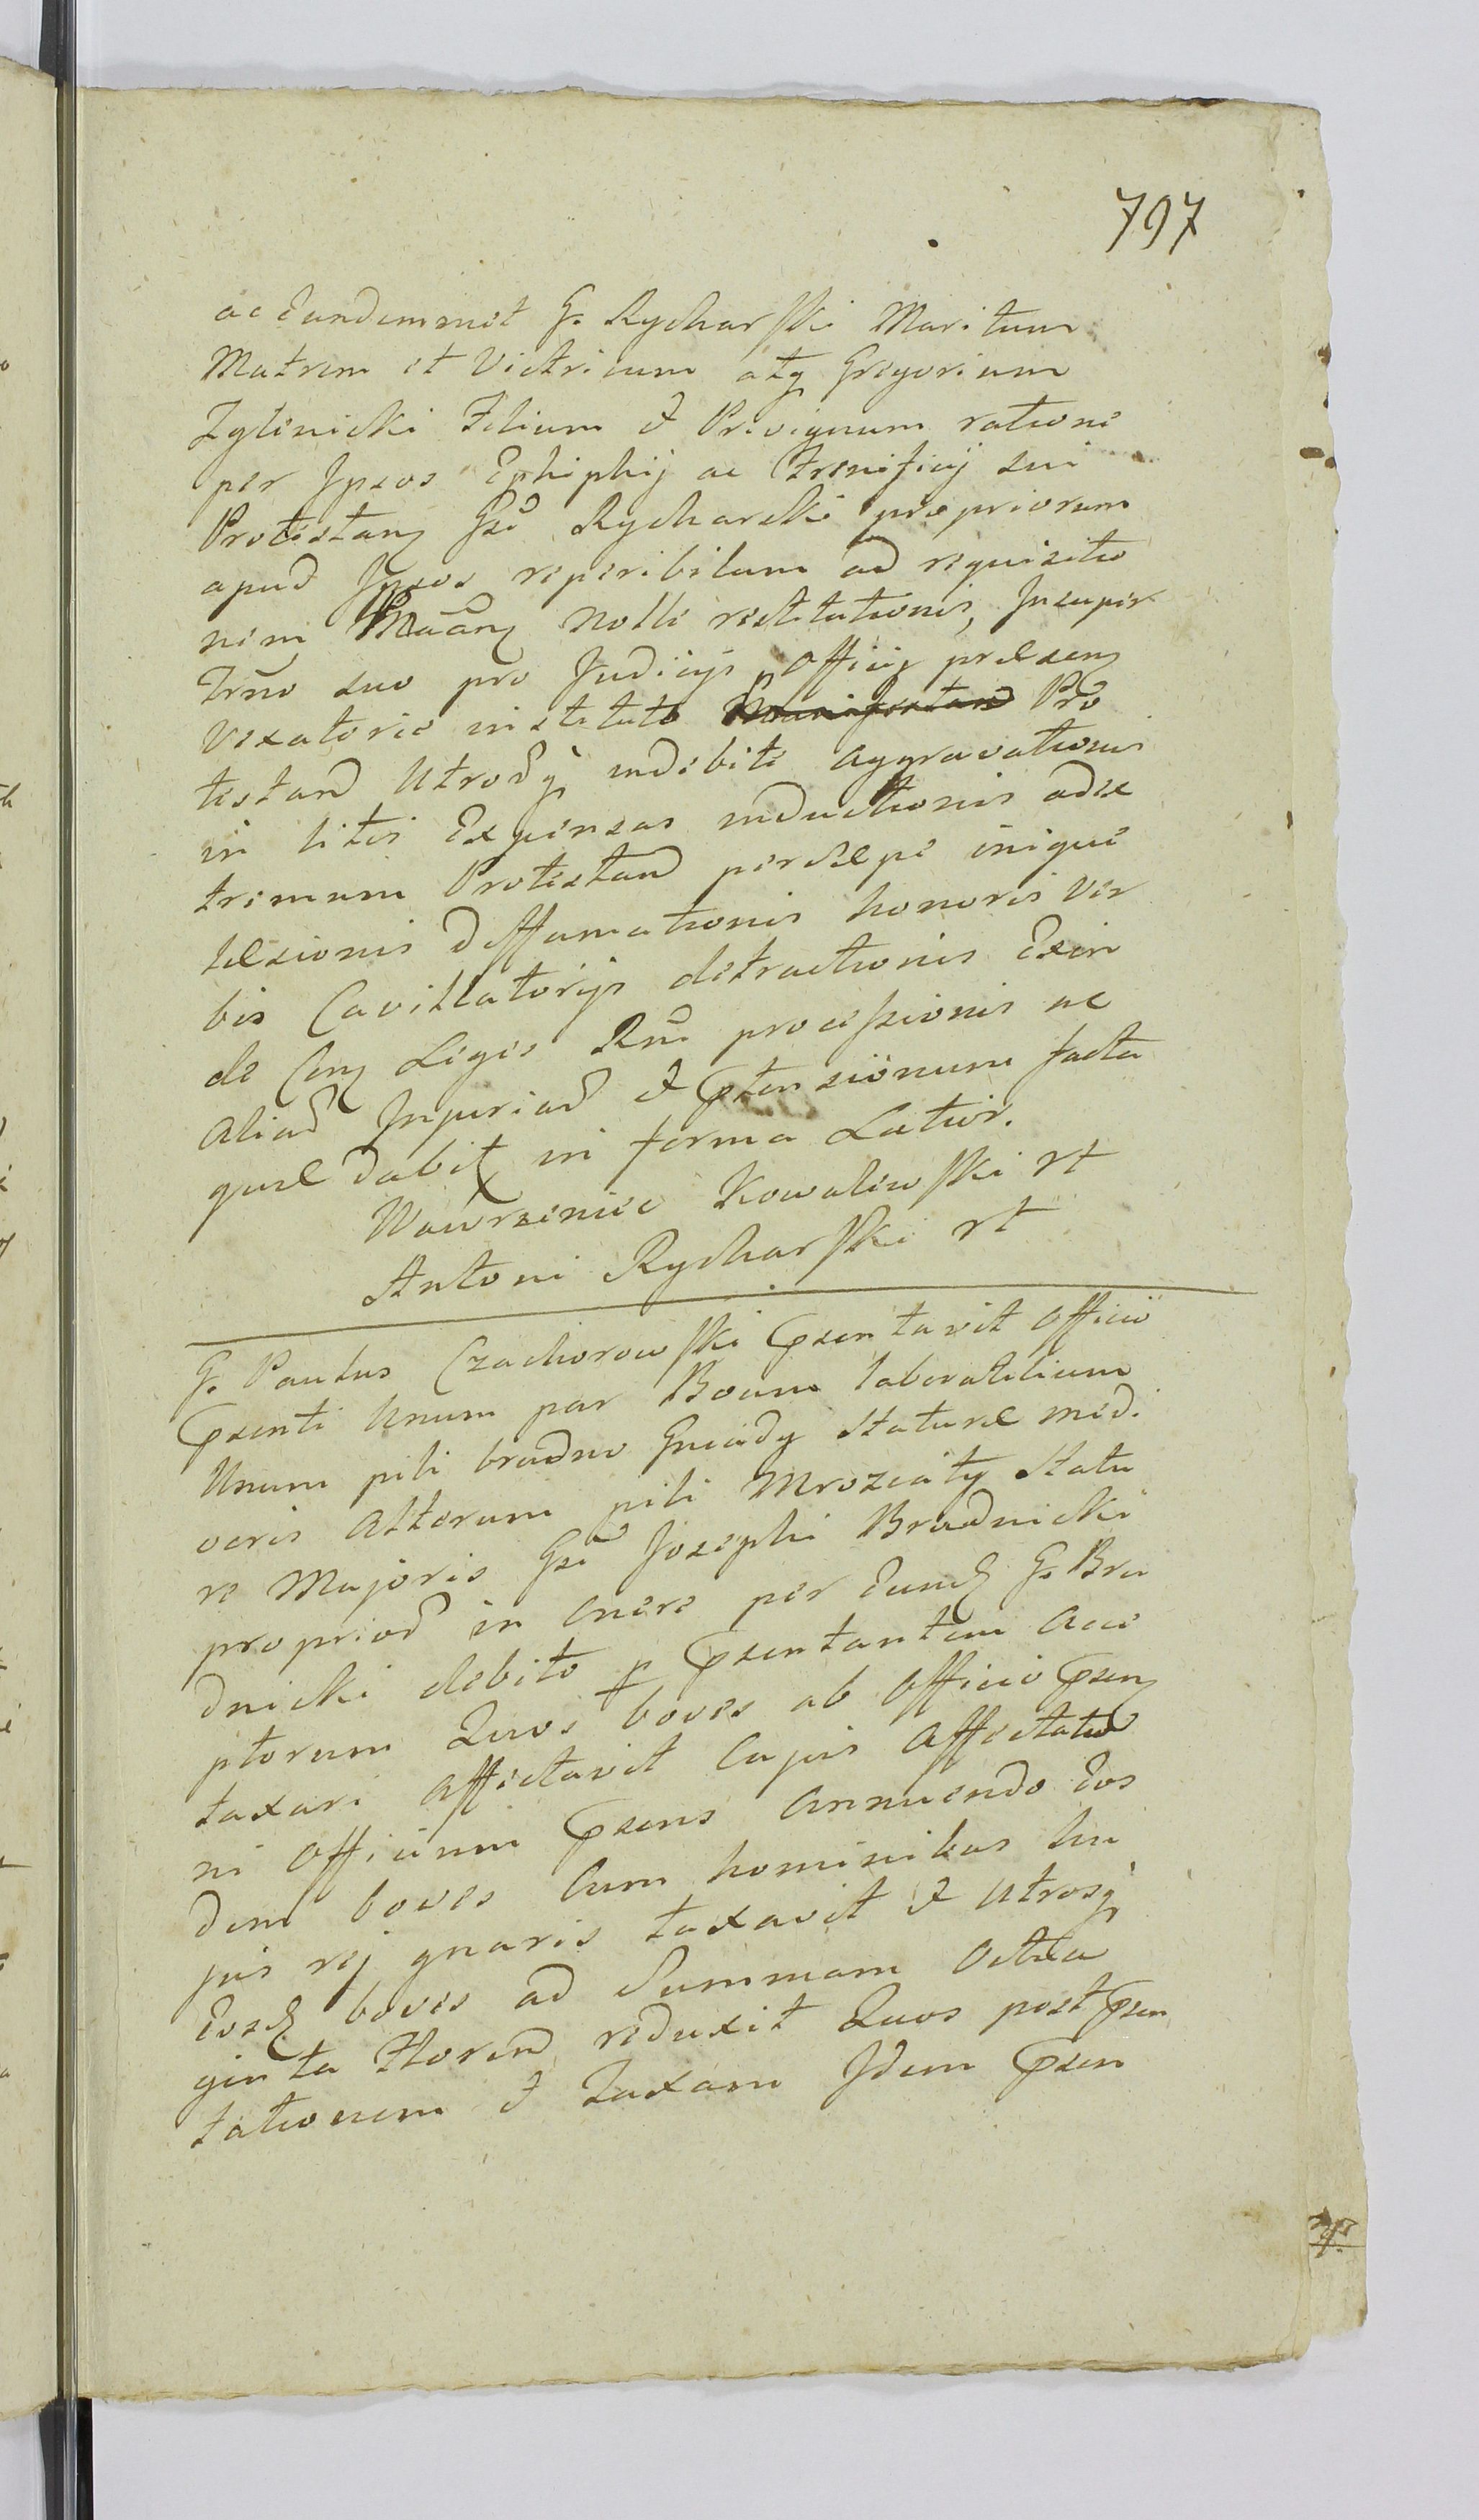 797
ac Eundemmet G. Rycharski Maritum
Matrem et Victricum atq Gregorium
Zglinicki Filium & Privignum ratione
per Ipsos Ephiphij ac Frenificij sui
Protestanӡ Gsi Rycharski propriorum
apud Ipsos reperibilum ad requisitio
nem nolle restitutionis, Insuper
Trno suo pro Judicijs Officij praesenӡ
vexatorie instituto Manifestand Pro
testand Utrobiq indebite aggravationis
in litis Expensas inductionis adex
tremum Protestand persaepe inique
laesionis deffamationis honoris ver
bis Cavillatorijs detractionis Exin
de Conӡ Legis Rni processionis ac
aliad Injuriad & Ptensionum facta
quae dabit in forma Latior.
Wawrzeniec Kowalewski rt
Antoni Rycharski rt
G. Paulus Czachorowski Psentavit Officio
Psenti Unum par Boum laboratilium
Unum pili brudno Gniady staturae med.
ocris Alterum pili Mroziaty Statu
re Majoris Gsi Josephi Brudnicki
propriod in onere per Eund G. Bru
dnicki debito p Psentantem acce
ptorum Quos boves ab Officio Psenӡ
taxari affectavit Cujus affectatio
ni Officium Psens annuendo Eos
dem boves Cum hominibus hu
jus rej gnaris taxavit & Utrosq
Eosd boves ad Summam Octua
ginta Florend reduxit Quos post Psen
tationem & Taxam Idem Psen